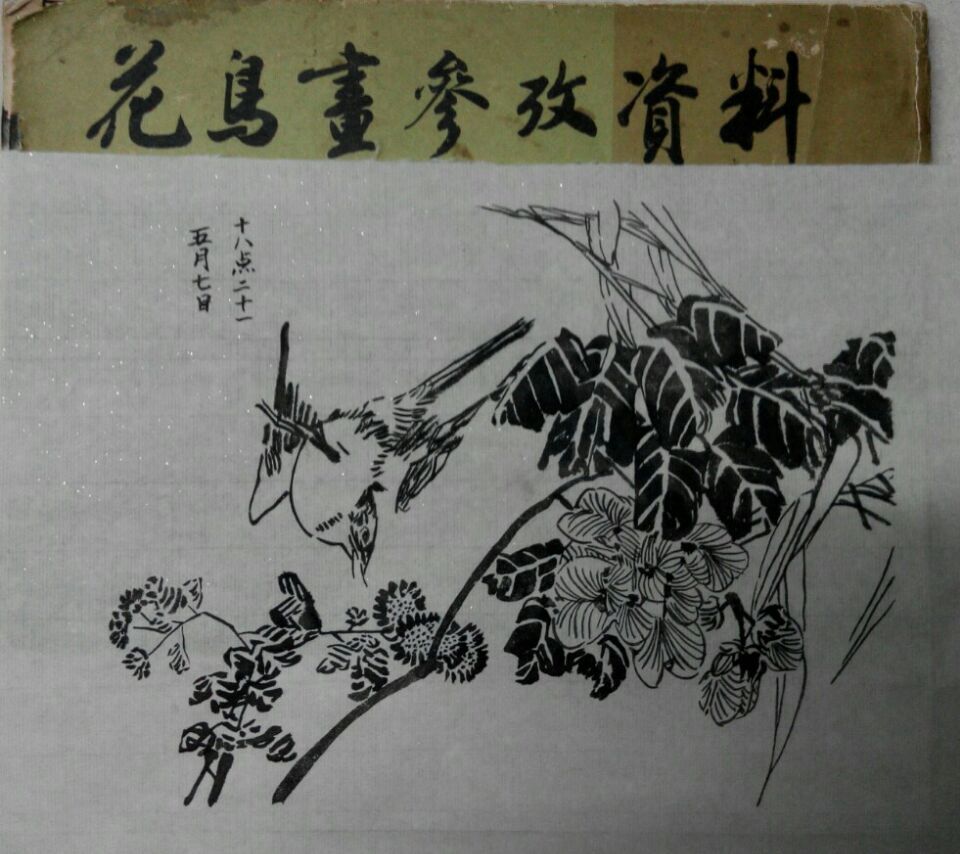 花鳥畫參攷資料
十八点二十一
五月七日